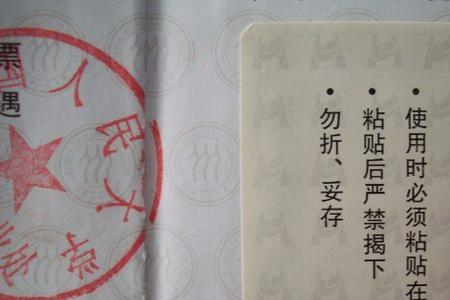 使用时必须粘贴在
粘贴后严禁揭下
勿折、妥存
票
遇
人民大学